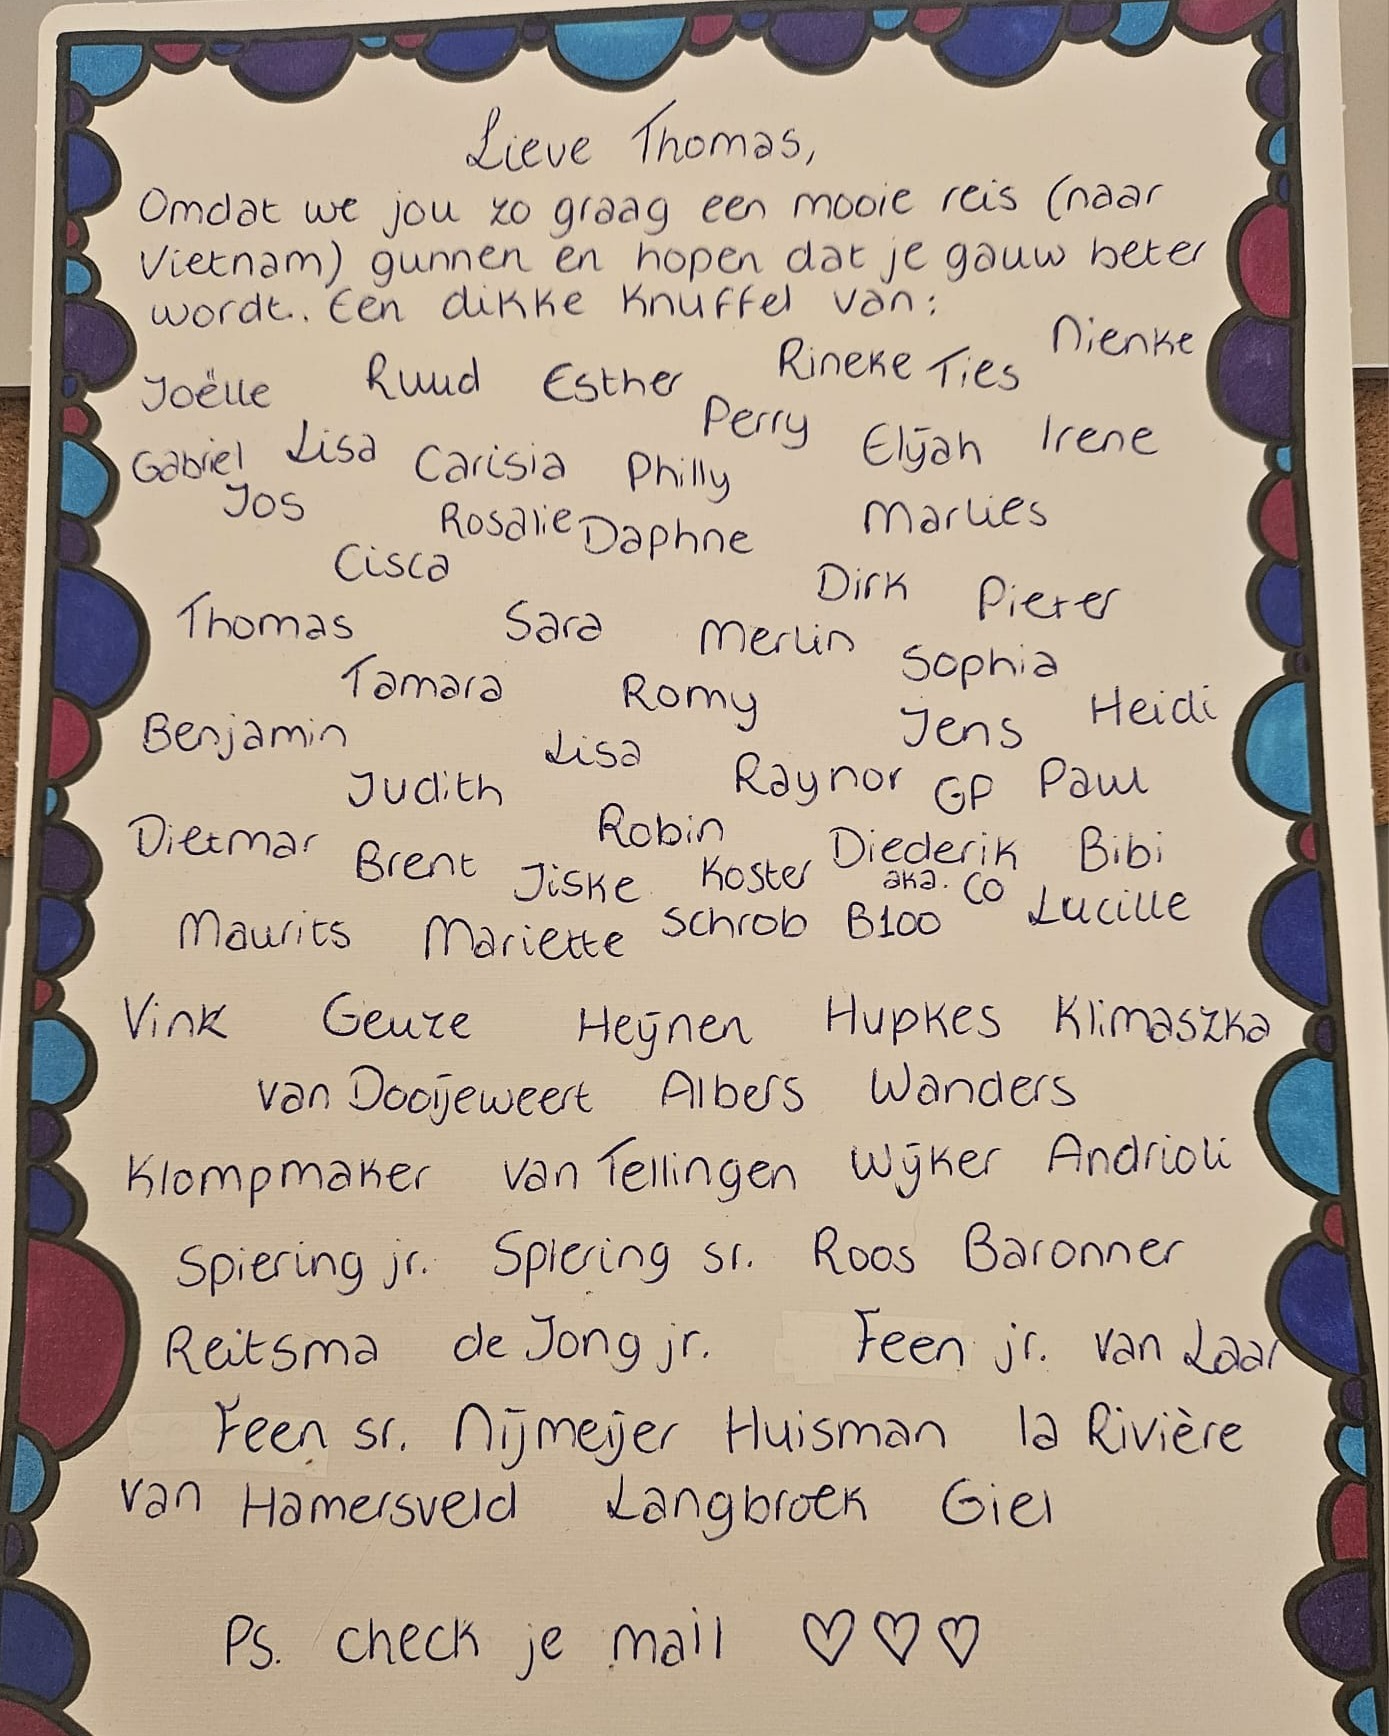 Lieve Thomas,
Omdat we jou zo graag een mooie reis (naar
Vietnam) gunnen en hopen dat je gauw beter
wordt. Een dikke knuffel van:
Joëlle Ruud Esther Rineke Ties Nienke
Gabriel Lisa Carisia Philly Perry Elijah Irene
Jos Rosalie Daphne Marlies
Cisca Dirk Pieter
Thomas Sara Merlin Sophia
Tamara Romy Jens Heidi
Benjamin Lisa Raynor GP Paul
Judith Robin
Dietmar Brent Jiske Koster Diederik Bibi
aka. CO
Maurits Mariette Schrob B100 Lucille
Vink Geuze Heijnen Hupkes Klimaszka
van Dooijeweert Albers Wanders
Klompmaker van Tellingen Wijker Andrioli
Spiering jr. Spiering sr. Roos Baronner
Reitsma de Jong jr. Feen jr. van Laar
Feen sr. Nijmeijer Huisman la Rivière
van Hamersveld Langbroek Giel
Ps. check je mail ♡♡♡